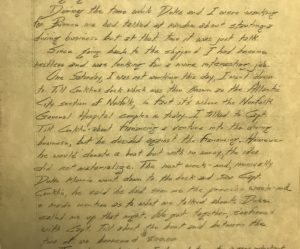 During the time while Duke and I were working
for             we had talked at random about starting a
diving business but at that time it was just talk.
Since going back to the shipyard I had become
restless and was looking for a more interesting job.
One Saturday, I was not working this day, I went down
to Till            dock which was then known as the Atlantic
City section of Norfolk, in fact it's where the Norfolk
General Hospital complex is today. I talked to Capt.
Till            about financing a venture into the diving
business, but he decided against the financing. However
he would donate a boat but with no money, the idea
did not materialize. The next week-end,
Duke           went down to the dock and saw Capt.
           , he said he had seen me the previous week-end
&             mention as to what we talked about. Duke
called me up that night. We got together,
with Capt. Till about the boat and between the
two of us borrowed